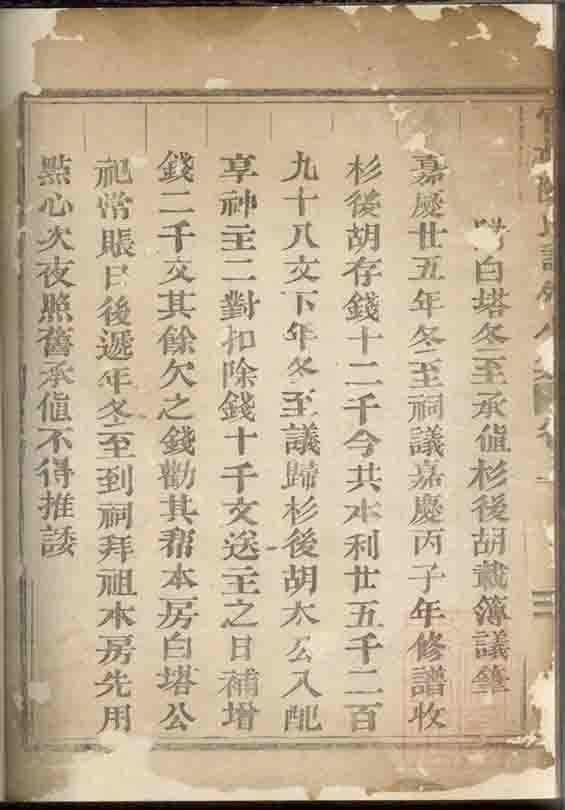 附白塔冬至承値杉後胡載簿議筆
嘉慶廿五年冬至祠議嘉慶丙子年修譜收
杉後胡存錢十二千今共本利廿五千二百
九十八文下年冬至議歸杉後胡太公入配
享神主二對扣除錢十千文送主之日補增
錢二千文其餘欠之錢勸其帮本房白塔公
祀常賬日後遞年冬至到祠拜祖本房先用
點心次夜照舊承值不得推諉